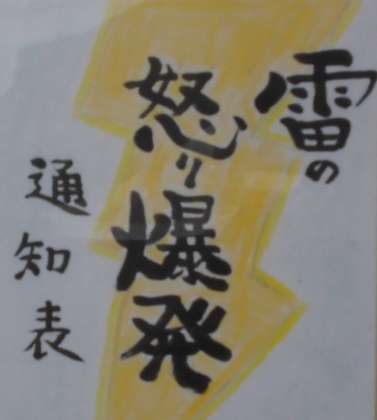 雷の
怒り爆発
通知表